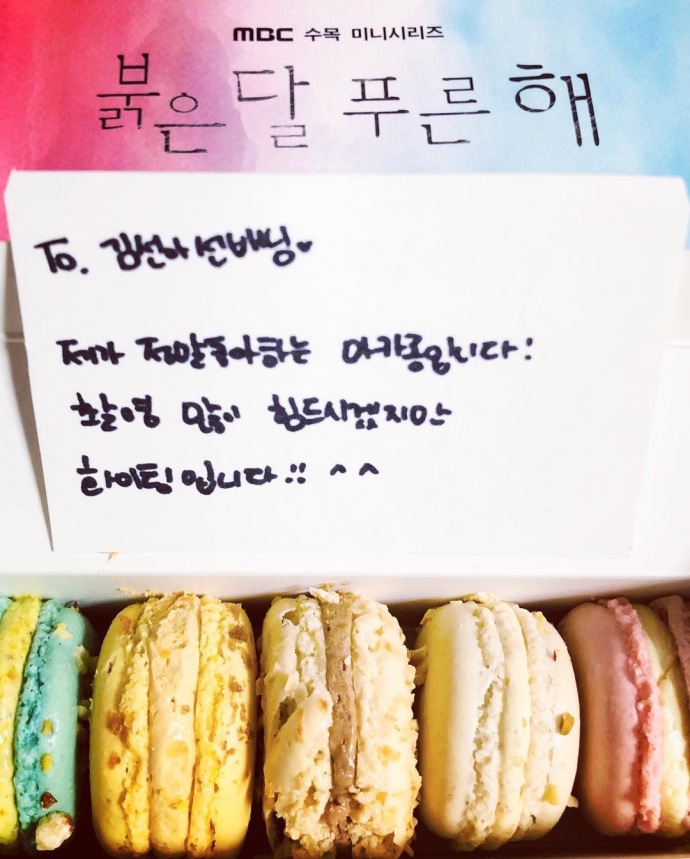 MBC 수목 미니시리즈
붉은 달 푸른 해
To. 김선아 선배님♥
제가 정말좋아하는 마카롱입니다!
촬영 많이 힘드시겠지만
화이팅입니다!! ^^